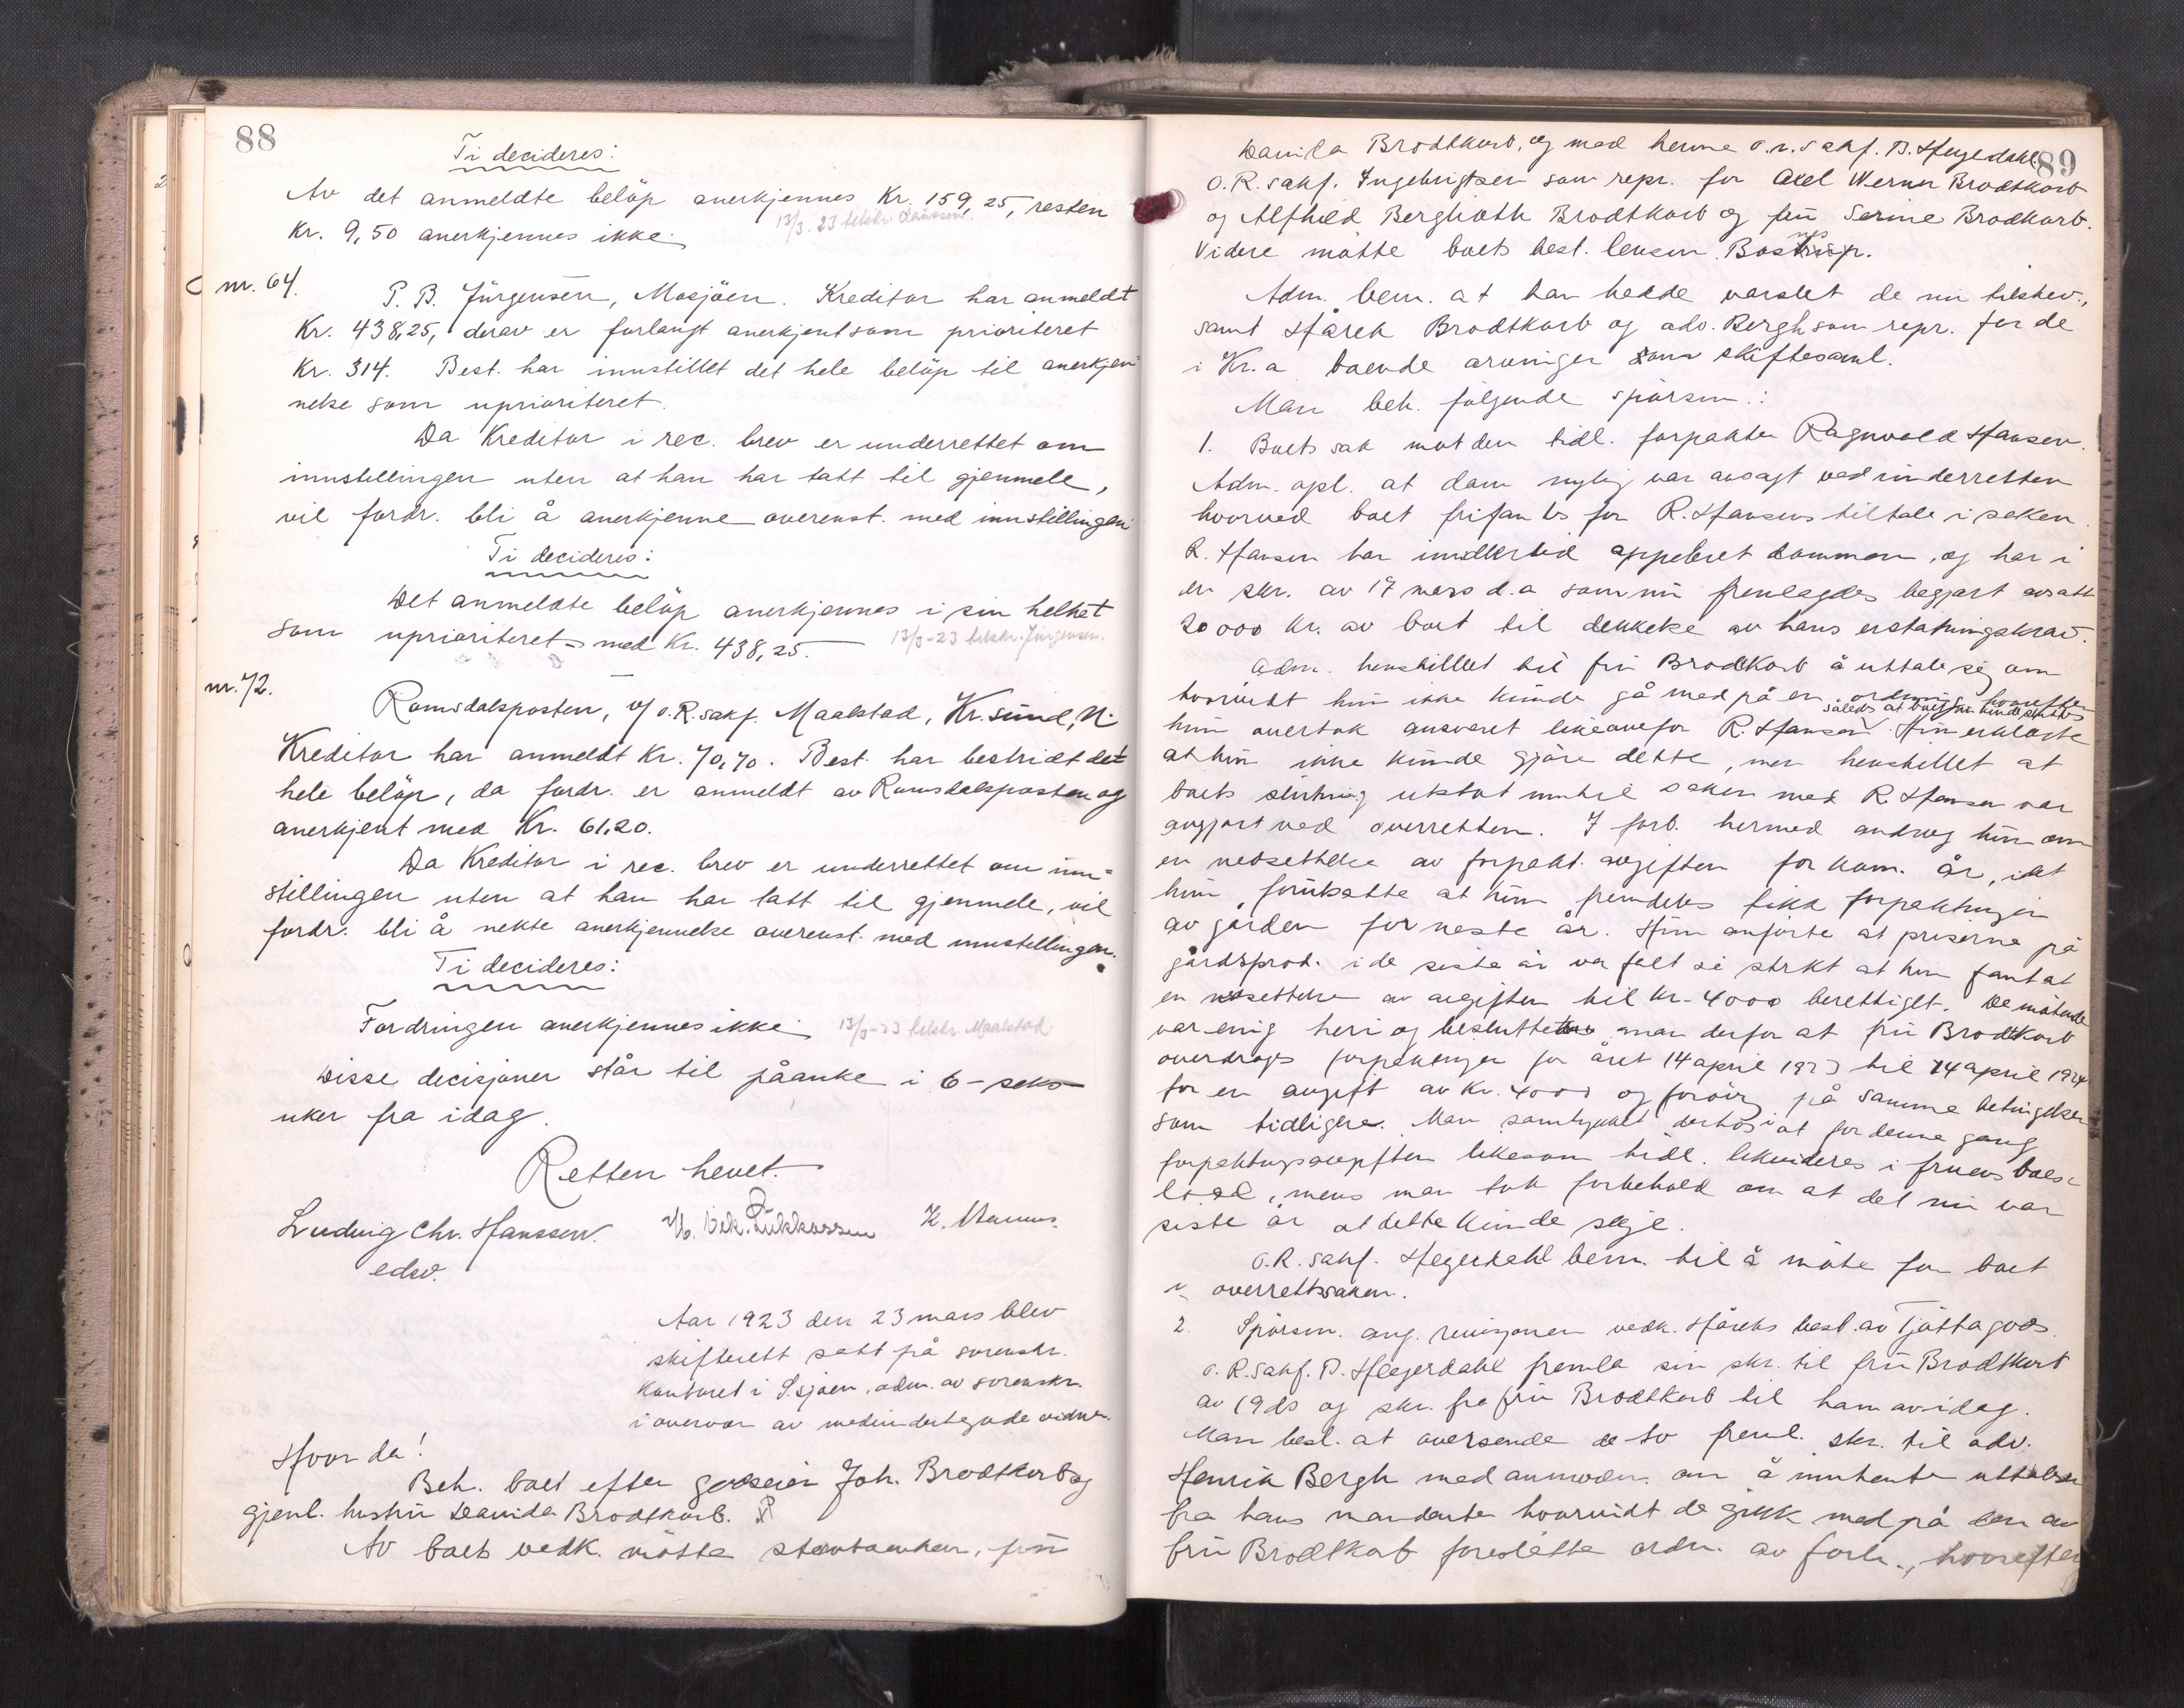 88
Ti decideres:
Av det anmeldte belöp anerkjennes Kr. 159,25, resten
Kr. 9,50 anerkjennes ikke.
13/3-23 telskr.
nr. 64.
P. B. Jürgensen, Mosjöen. Kreditor har anmeldt
Kr. 438,25, derav er forlangt anerkjent som prioriteret
Kr. 314. Best. har innstillet det hele belöp til anerkjen-
nelse som uprioriteret.
Da Kreditor i rec. brev er underrettet om
innstillingen uten at han har tatt til gjenmele,
vil fordr. bli å anerkjenne overenst. med innstillingen.
Ti decideres:
Det anmeldte belöp anerkjennes i sin helhet
som uprioriteret med Kr. 438,25.
13/3-23 telskr. Jürgensen.
nr. 72.
Romsdalsposten, v/ o.R.sakf. Maalstad, Kr.sund, N.
Kreditor har anmeldt Kr. 70,70. Best. har bestridt det
hele belöp, da fordr. er anmeldt av Romsdalsposten og
anerkjent med Kr. 61,20.
Da Kreditor i rec. brev er underrettet om inn-
stillingen uten at han har tatt til gjenmele, vil
fordr. bli å nekte anerkjennelse overenst. med innstillingen.
Ti decideres:
Fordringen anerkjennes ikke.
13/3-23 telskr. Maalstad
Disse decisjoner står til påanke i 6-seks
uker fra idag.
Retten hevet.
Ludvig Chr. Hanssen.
edsv.
Aar 1923 den 23 mars blev
skifterett satt på sorenskr.
kontoret i S.sjöen, adm. av sorenskr.
i overvær av medundertegnede vidner.
Hvor da!
Beh. boet efter godseier Joh. Brodtkorb og
gjenl. hustru Davida Brodtkorb.
Av boets vedk. mötte fru
89
Davida Brodtkorb, og med henne o.r.sakf. B. Hegerdahl.
O.R. sakf. Ingebrigtsen som repr. for Axel Werner Brodtkorb
og Alfhild Berglioth Brodtkorb og fru Serine Brodtkorb.
Videre mötte boets best. lensm.
Adm. bem. at han hadde varslet de nu tilstev.,
samt Hårek Brodtkorb og adv. Bergh som repr. for de
i Kr.a boende arvinger som skiftesaml.
Man beh. fölgende spörsm.:
1. Boets sak mot den tidl. forpakter Ragnvald Hansen.
Adm. opl. at dom nylig var avsagt ved underretten
hvorved boet frifantes for R. Hansens tiltale i saken.
R. Hansen har imidlertid appelleret dommen, og har i
en skr. av 17 mars d.a som nu fremlagdes begjært avsatt
20000 kr. av boet til dekkelse av hans erstatningskrav.
Adm. henstillet til fru Brodtkorb å uttale sig om
hvorvidt hun ikke kunde gå med på en ordning hvorefter
således at boet kunde sluttes
hun overtok ansvaret likeoverfor R. Hansen. Hun erklærte
at hun ikke kunde gjöre dette, men henstillet at
boets slutning utstod inntil saken med R. Hansen var
avgjort ved overretten. I forb. hermed androg hun om
en nedsettelse av forpakt. avgiften for kom. år, idet
hun forutsatte at hun fremdeles fikk forpaktningen
av gården for neste år. Hun anförte at priserne på
gårdsprod. i de siste år var falt så sterkt at hun fant at
en nedsettelse av avgiften til kr. 4000 berettiget. De mötende
var enig heri og besluttet man derfor at fru Brodtkorb
overdroges forpaktningen for året 14 april 1923 til 14 april 1924
for en avgift av kr. 4000 og forövrig på samme betingelser
som tidligere. Man samtykket derhos i at for denne gang
forpaktningsavgiften likesom tidl. likvideres i fruens boes-
lod, mens man tok forbehold om at det nu var
siste år at dette kunde skje.
O.R. sakf. Hegerdahl bem. til å möte for boet
i overrettssaken.
2. Spörsm. ang. revisjonen vedk. Håreks best. av Tjøttagods.
O.R. sakf. B. Hegerdahl fremla sin skr. til fru Brodtkorb
av 19 ds og skr. fra fru Brodtkorb til ham av idag.
Man besl. at oversende de to freml. skr. til adv.
Henrik Bergh med anmodn. om å innhente uttalelse
fra hans mandanter hvorvidt de gikk med på den av
fru Brodtkorb foreslåtte ordn. av forh., hvorefter